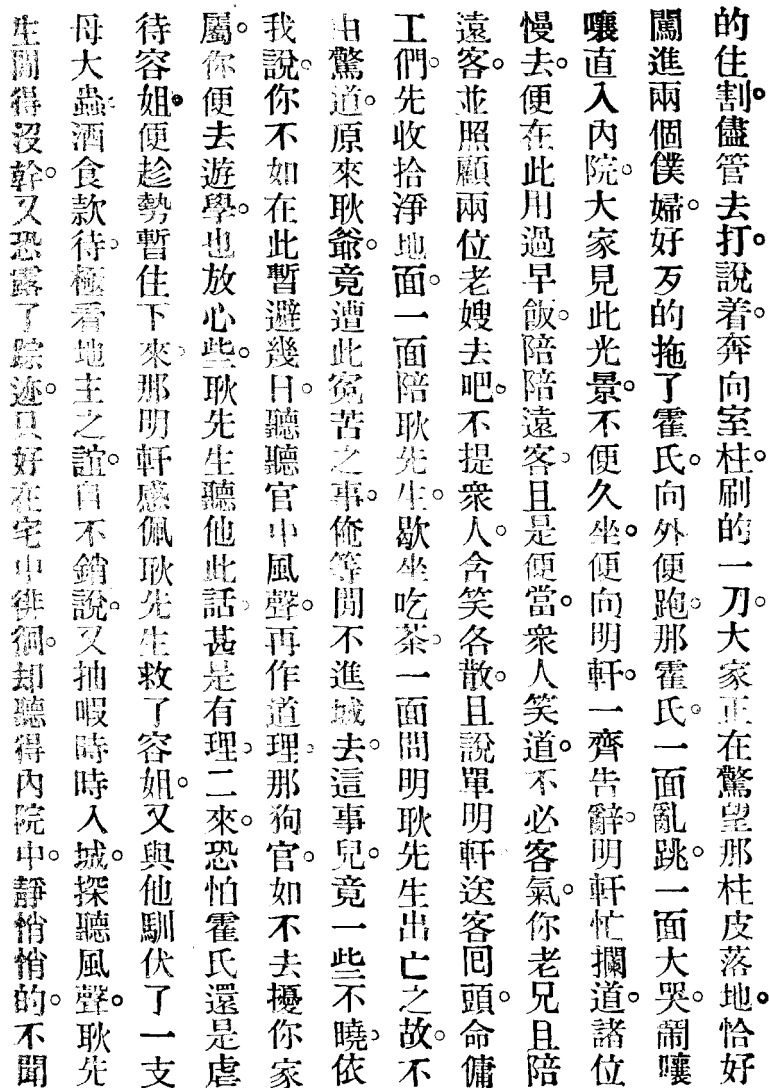 的住割。儘管去打。說着。奔向室柱。刷的一刀。大家正在驚望那柱皮落地。恰好
闖進兩個僕婦。好歹的拖了霍氏。向外便跑。那霍氏。一面亂跳。一面大哭。鬧嚷
嚷直入內院。大家見此光景。不便久坐。便向明軒。一齊告辭。明軒忙攔道。諸位
慢去。便在此用過早飯。陪陪遠客。且是便當。衆人笑道。不必客氣。你老兄且陪
遠客。並照顧兩位老嫂去吧。不提衆人。含笑各散。且說單明軒送客囘頭。命傭
工們。先收拾淨地面。一面陪耿先生。歇坐吃茶。一面問明耿先生出亡之故。不
由驚道。原來耿爺。竟遭此寃苦之事。俺等間不進城去。這事兒。竟一些不曉。依
我說。你不如在此暫避幾日。聽聽官中風聲。再作道理。那狗官。如不去擾你家
屬。你便去遊學。也放心些。耿先生聽他此話。甚是有理。二來。恐怕霍氏還是虐
待容姐。便趁勢暫住下來。那明軒感佩耿先生救了容姐。又與他馴伏了一支
母大蟲。酒食款待。極看地主之誼。自不銷說。又抽暇時時入城。探聽風聲。耿先
生閒得沒幹。又恐露了踪迹。只好在宅中徘徊。却聽得內院中。靜悄悄的。不聞